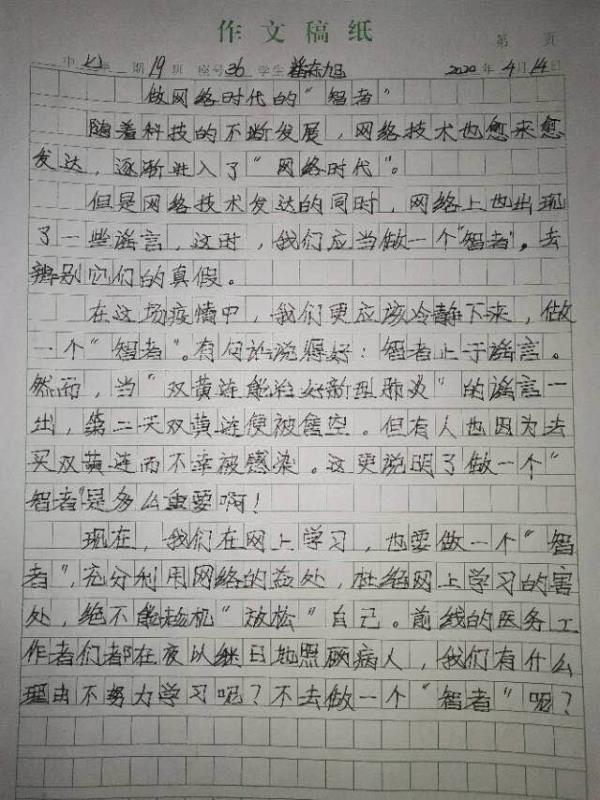 作文稿纸
第 页
中 七 年 期 19 班 座号 36 学生 旭 2020 年 4 月 14 日
做网络时代的“智者”
随着科技的不断发展，网络技术也愈来愈
发达，逐渐进入了“网络时代”。
但是网络技术发达的同时，网络上也出现
了一些谣言，这时，我们应当做一个“智者”，去
辨别它们的真假。
在这场疫情中，我们更应该冷静下来，做
一个“智者”。有句话说得好：智者止于谣言。
然而，当“双黄连能治好新型肺炎”的谣言一
出，第二天双黄连便被售空。但有人也因为去
买双黄连而不幸被感染。这更说明了做一个“
智者”是多么重要啊！
现在，我们在网上学习，也要做一个“智
者”，充分利用网络的益处，杜绝网上学习的害
处，绝不能趁机“放松”自己。前线的医务工
作者们都在夜以继日地照顾病人，我们有什么
理由不努力学习呢？不去做一个“智者”呢？